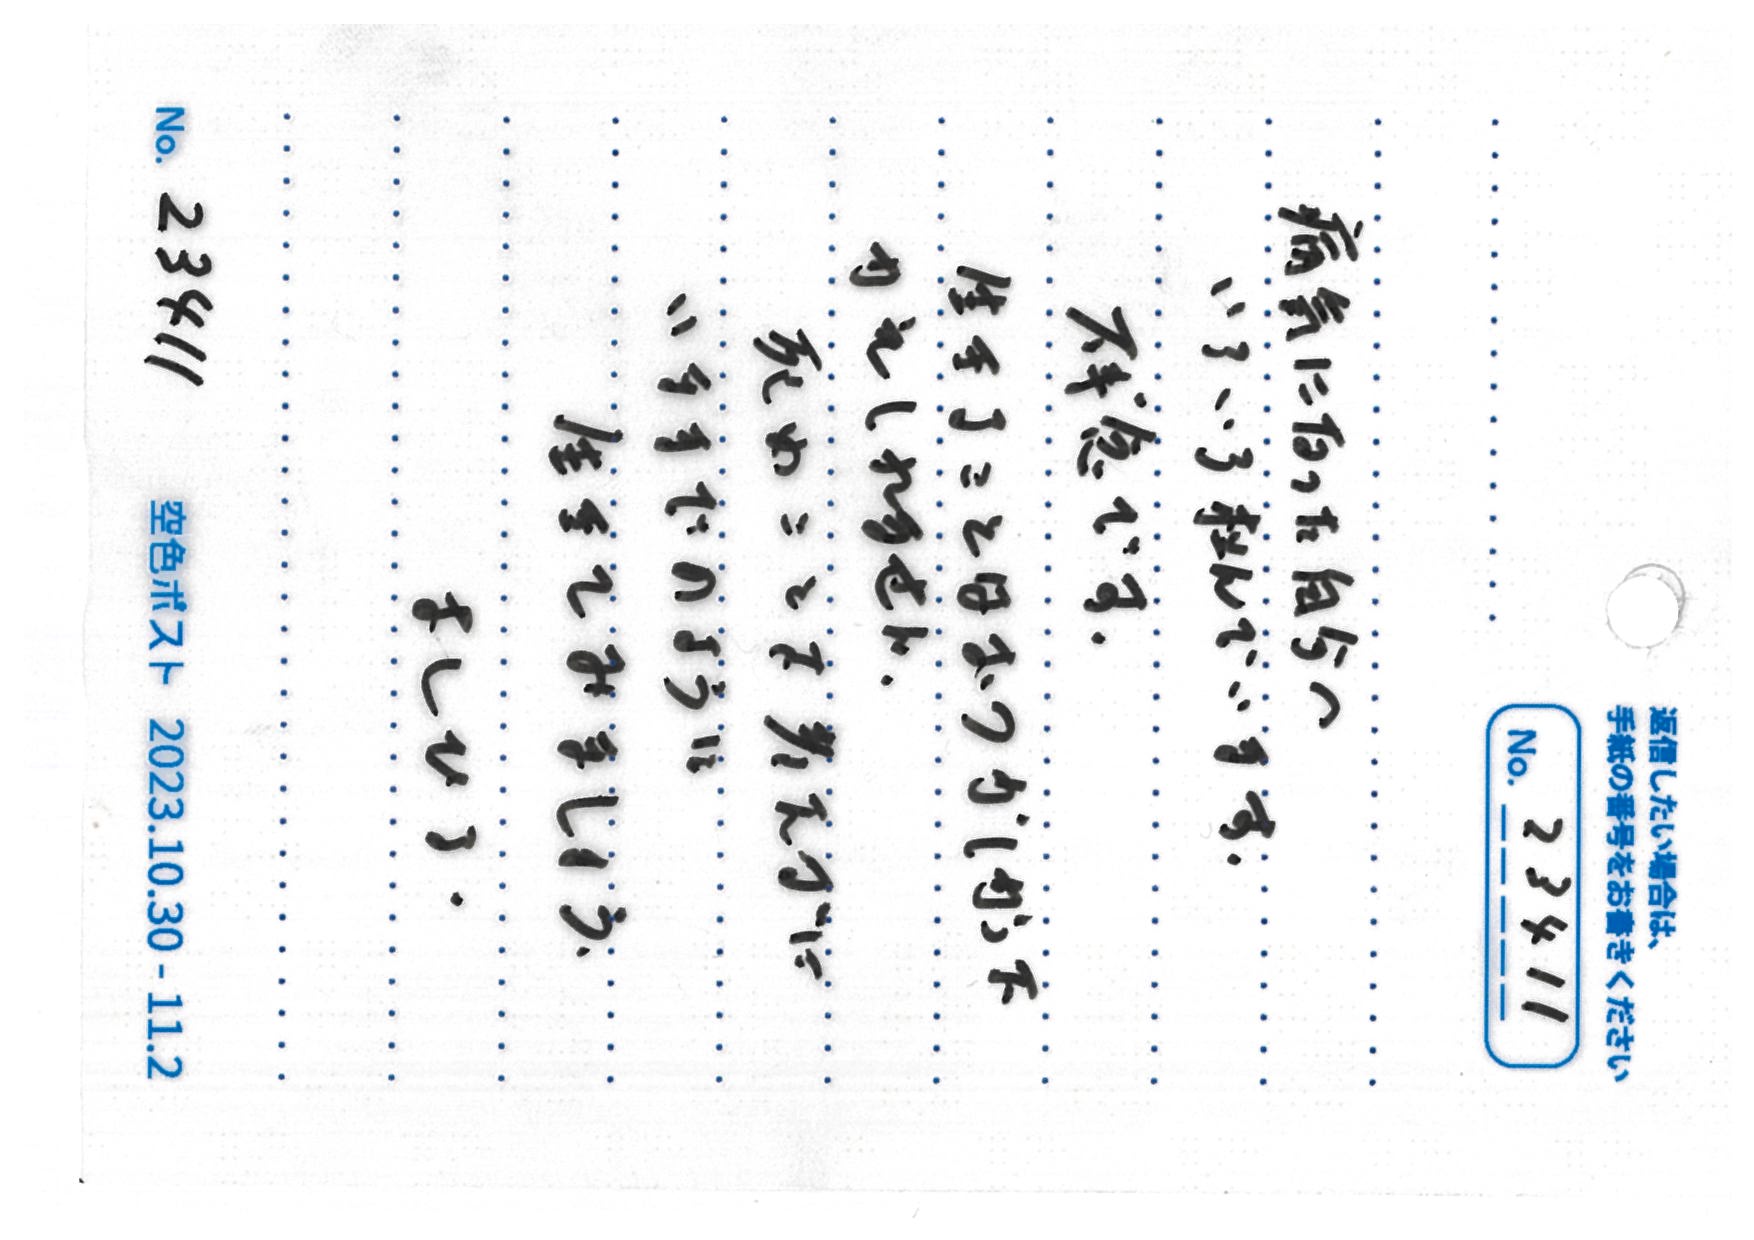 返信したい場合は、
手紙の番号をお書きください
No. 23411
病気になった自分へ
いろいろ悩んでいます.
残念です.
生きることはむつかしかった
かもしれません.
死ぬことを考えずに
いままでのように
生きてみましょう.
よしひろ.
No. 23411
空色ポスト 2023.10.30 - 11.2